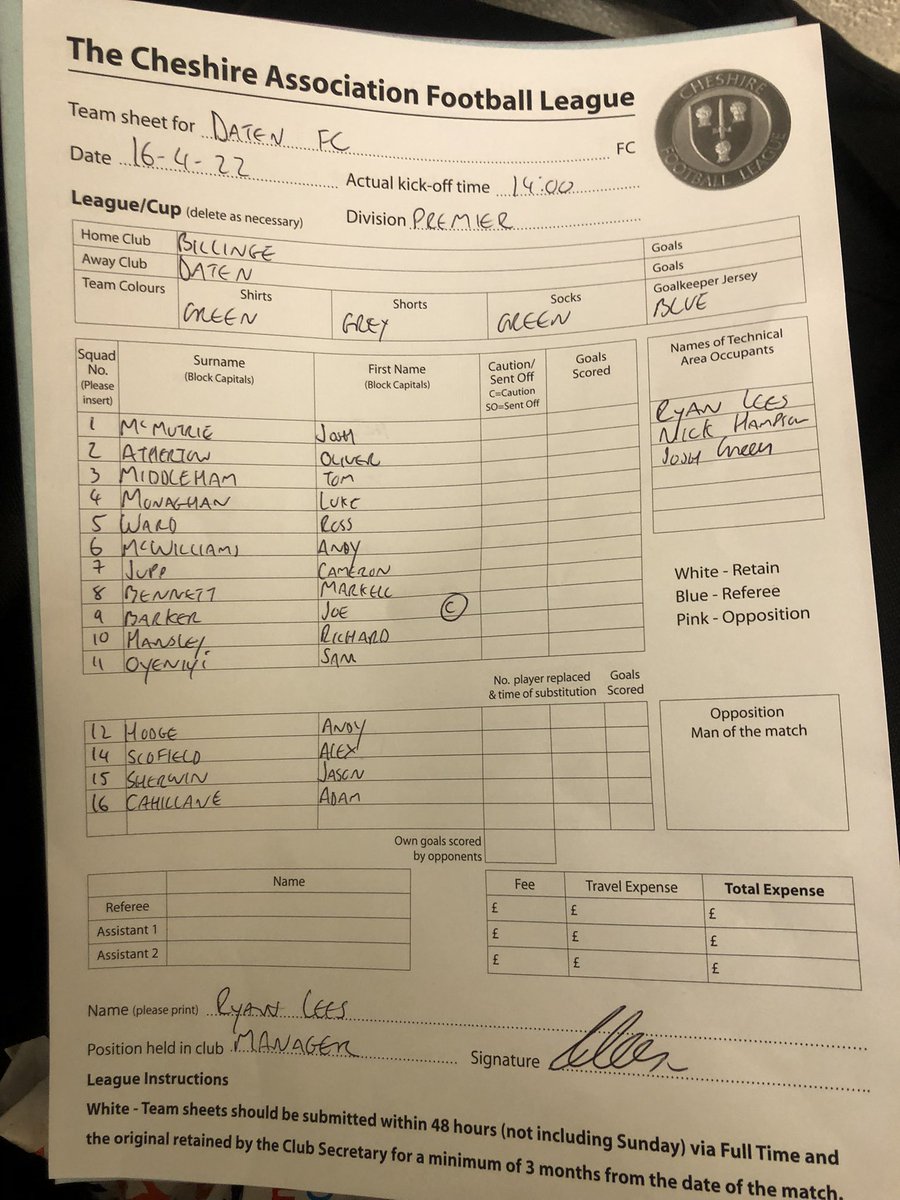 The Cheshire Association Football League
CHESHIRE
FOOTBALL LEAGUE
Team sheet for DATEN FC FC
Date 16-4-22 Actual kick-off time 14:00
League/Cup (delete as necessary) Division PREMIER
Home Club BILLINGE Goals
Away Club DATEN Goals
Team Colours Shirts GREEN Shorts GREY Socks GREEN Goalkeeper Jersey BLUE
Squad No. (Please insert) Surname (Block Capitals) First Name (Block Capitals) Caution/ Sent Off C=Caution SO=Sent Off Goals Scored
Names of Technical Area Occupants
RYAN LEES
NICK HAMPSON
JOSH Green
1 McMUTRIE JOSH
2 ATHERTON OLIVER
3 MIDDLEHAM TOM
4 MONAGHAN LUKE
5 WARD ROSS
6 McWILLIAMS ANDY
7 JUPP CAMERON
8 BENNETT MARKELL
9 BARKER JOE C
10 HANSLEY RICHARD
11 OYENIYI SAM
White - Retain
Blue - Referee
Pink - Opposition
No. player replaced & time of substitution Goals Scored
12 HODGE ANDY
14 SCOFIELD ALEX
15 SHERWIN JASON
16 CAHILLANE ADAM
Opposition
Man of the match
Own goals scored by opponents
Name
Referee
Assistant 1
Assistant 2
Fee Travel Expense Total Expense
£ £ £
£ £ £
£ £ £
Name (please print) RYAN LEES
Position held in club MANAGER Signature
League Instructions
White - Team sheets should be submitted within 48 hours (not including Sunday) via Full Time and
the original retained by the Club Secretary for a minimum of 3 months from the date of the match.